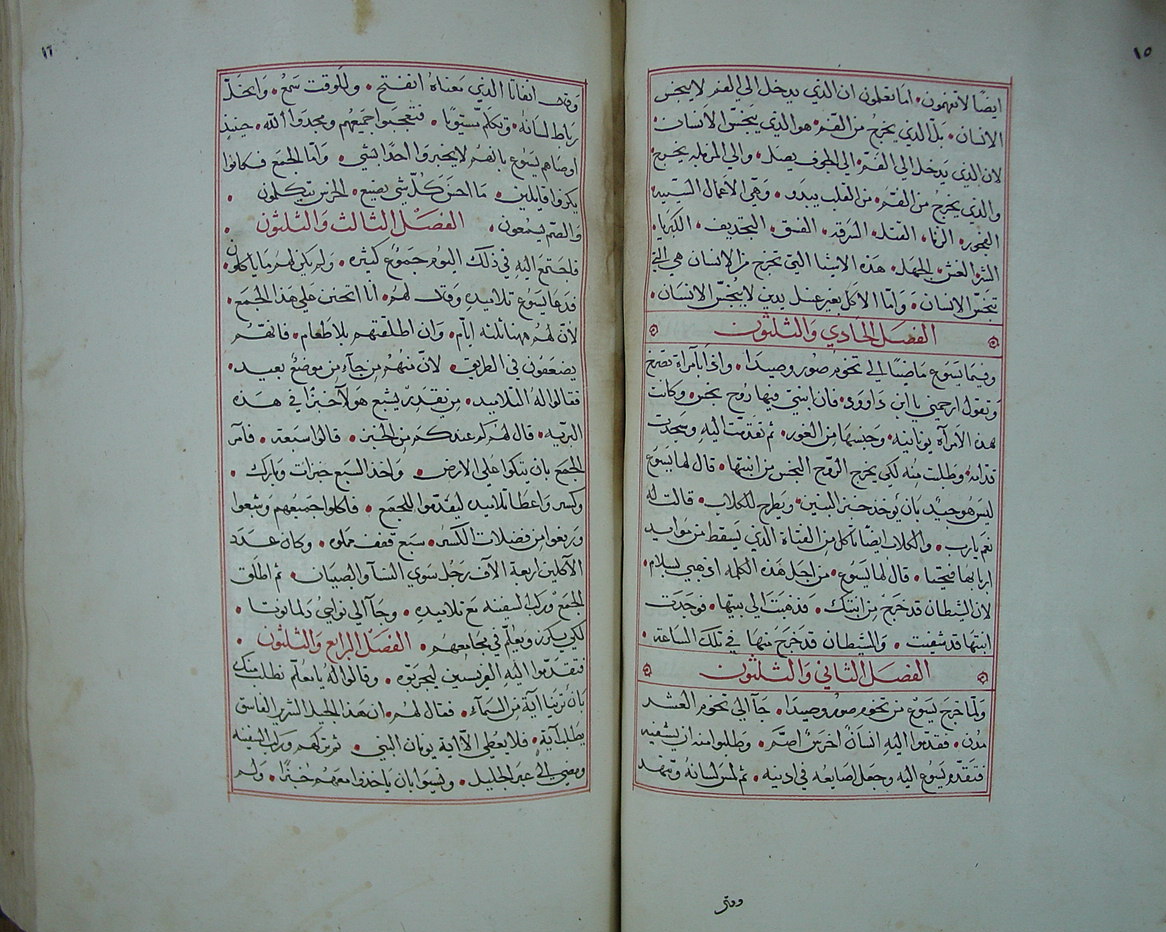 ١٥
ايضًا لا تفهمون. اما تعلمون ان الذي يدخل الي الفم لا ينجس
الانسان. بل الذي يخرج من الفم. هو الذي ينجس الانسان.
لان الذي يدخل الي الفم. الي الجوف يصل. والي المزبله يخرج
والذي يخرج من الفم. من القلب يبدو. وهي الاعمال السييه
الفجور. الزنا. القتل. السرقه. الفسق. التجديف. الكبريا.
الشر. الغش. الجهل. هذه الاشيا التي تخرج من الانسان هي التي
تنجس الانسان. واما الاكل بغير غسل يدين لا ينجس الانسان.
الفصل الحادي والثلثون
وفيما يسوع ماضيًا الي تخوم صور وصيدا. واذا بامراة تصرخ
وتقول ارحمني يا ابن داوود. فان ابنتي فيها روح نجس. وكانت
هذه الامراة يونانيه. وجنسها من الغور. ثم تقدمت اليه وسجدت
قدامه. وطلبت منه لكي يخرج الروح النجس من ابنتها. قال لها يسوع
ليس هو جيد بان يوخذ خبز البنين. ويطرح للكلاب. قالت له
نعم يا رب. والكلاب ايضًا تاكل من الفتاة الذي يسقط من موايد
اربابها فتحيا. قال لها يسوع. من اجل هذه الكلمه اذهبي بسلام.
لان الشيطان قد خرج من ابنتك. فذهبت الي بيتها. فوجدت
ابنتها قد شفيت. والشيطان قد خرج منها في تلك الساعة.
الفصل الثاني والثلثون
ولما خرج يسوع من تخوم صور وصيدا. جآ الي تخوم العشر
مدن. فقدموا اليه انسانٌ اخرس اصم. وطلبوا منه ان يشفيه
فتقدم يسوع اليه وجعل اصابعه في ادنيه. ثم لمس لسانه وتنهد
وقال
١٦
وقال انفاتا الذي معناه انفتح. وللوقت سمع. وانحلّ
رباط لسانه. وتكلم مستويا. فتعجبوا جميعهم ومجدوا الله. حينيذٍ
اوصاهم يسوع بانهم لا يخبروا احدا بشي. واما الجمع فكانوا
يكرزوا قايلين. ما احسن كل شي يصنع. الخرس يتكلمون.
والصم يسمعون. الفصل الثالث والثلثون.
فاجتمع اليه في ذلك اليوم جموعٌ كثيره. ولم يكن لهم ما ياكلون.
فدعا يسوع تلاميده وقال لهم. انا اتحنن علي هذا الجمع.
لان لهم هاهنا ثلثه ايام. وان اطلقتهم بلا طعام. فانهم
يضعفون في الطريق. لان منهم من جآ من موضعٍ بعيد.
فقالوا له التلاميد. من يقدر يشبع هولآ خبزًا في هذه
البريه. قال لهم كم عندكم من الخبز. قالوا سبعة. فامر
الجمع بان يتكوا علي الارض. واخذ السبع خبزات وبارك.
وكسر واعطا تلاميده ليقدموا للجمع. فاكلوا جميعهم وشبعوا
ورفعوا من فضلات الكسر. سبع قفف مملوه. وكان عدد
الاكلين اربعة الاف رجل سوي النسآ والصبيان. ثم اطلق
الجمع وركب السفينه مع تلاميده. وجآ الي نواحي دلمانوتا.
لكي يكرز ويعلم في مجامعهم. الفصل الرابع والثلثون.
فتقدموا اليه الفريسيين ليجربوه. وقالوا له يا معلم نطلب منك
بان ترينا اية من السمآء. فقال لهم. ان هذا الجيل الشرير الفاسق
يطلب آية. فلا يعطي الا اية يونان النبي. ثم تركهم وركب السفينه
ومضي الي عبر الجليل. ونسوا بان ياخدوا معهم خبزًا. ولم